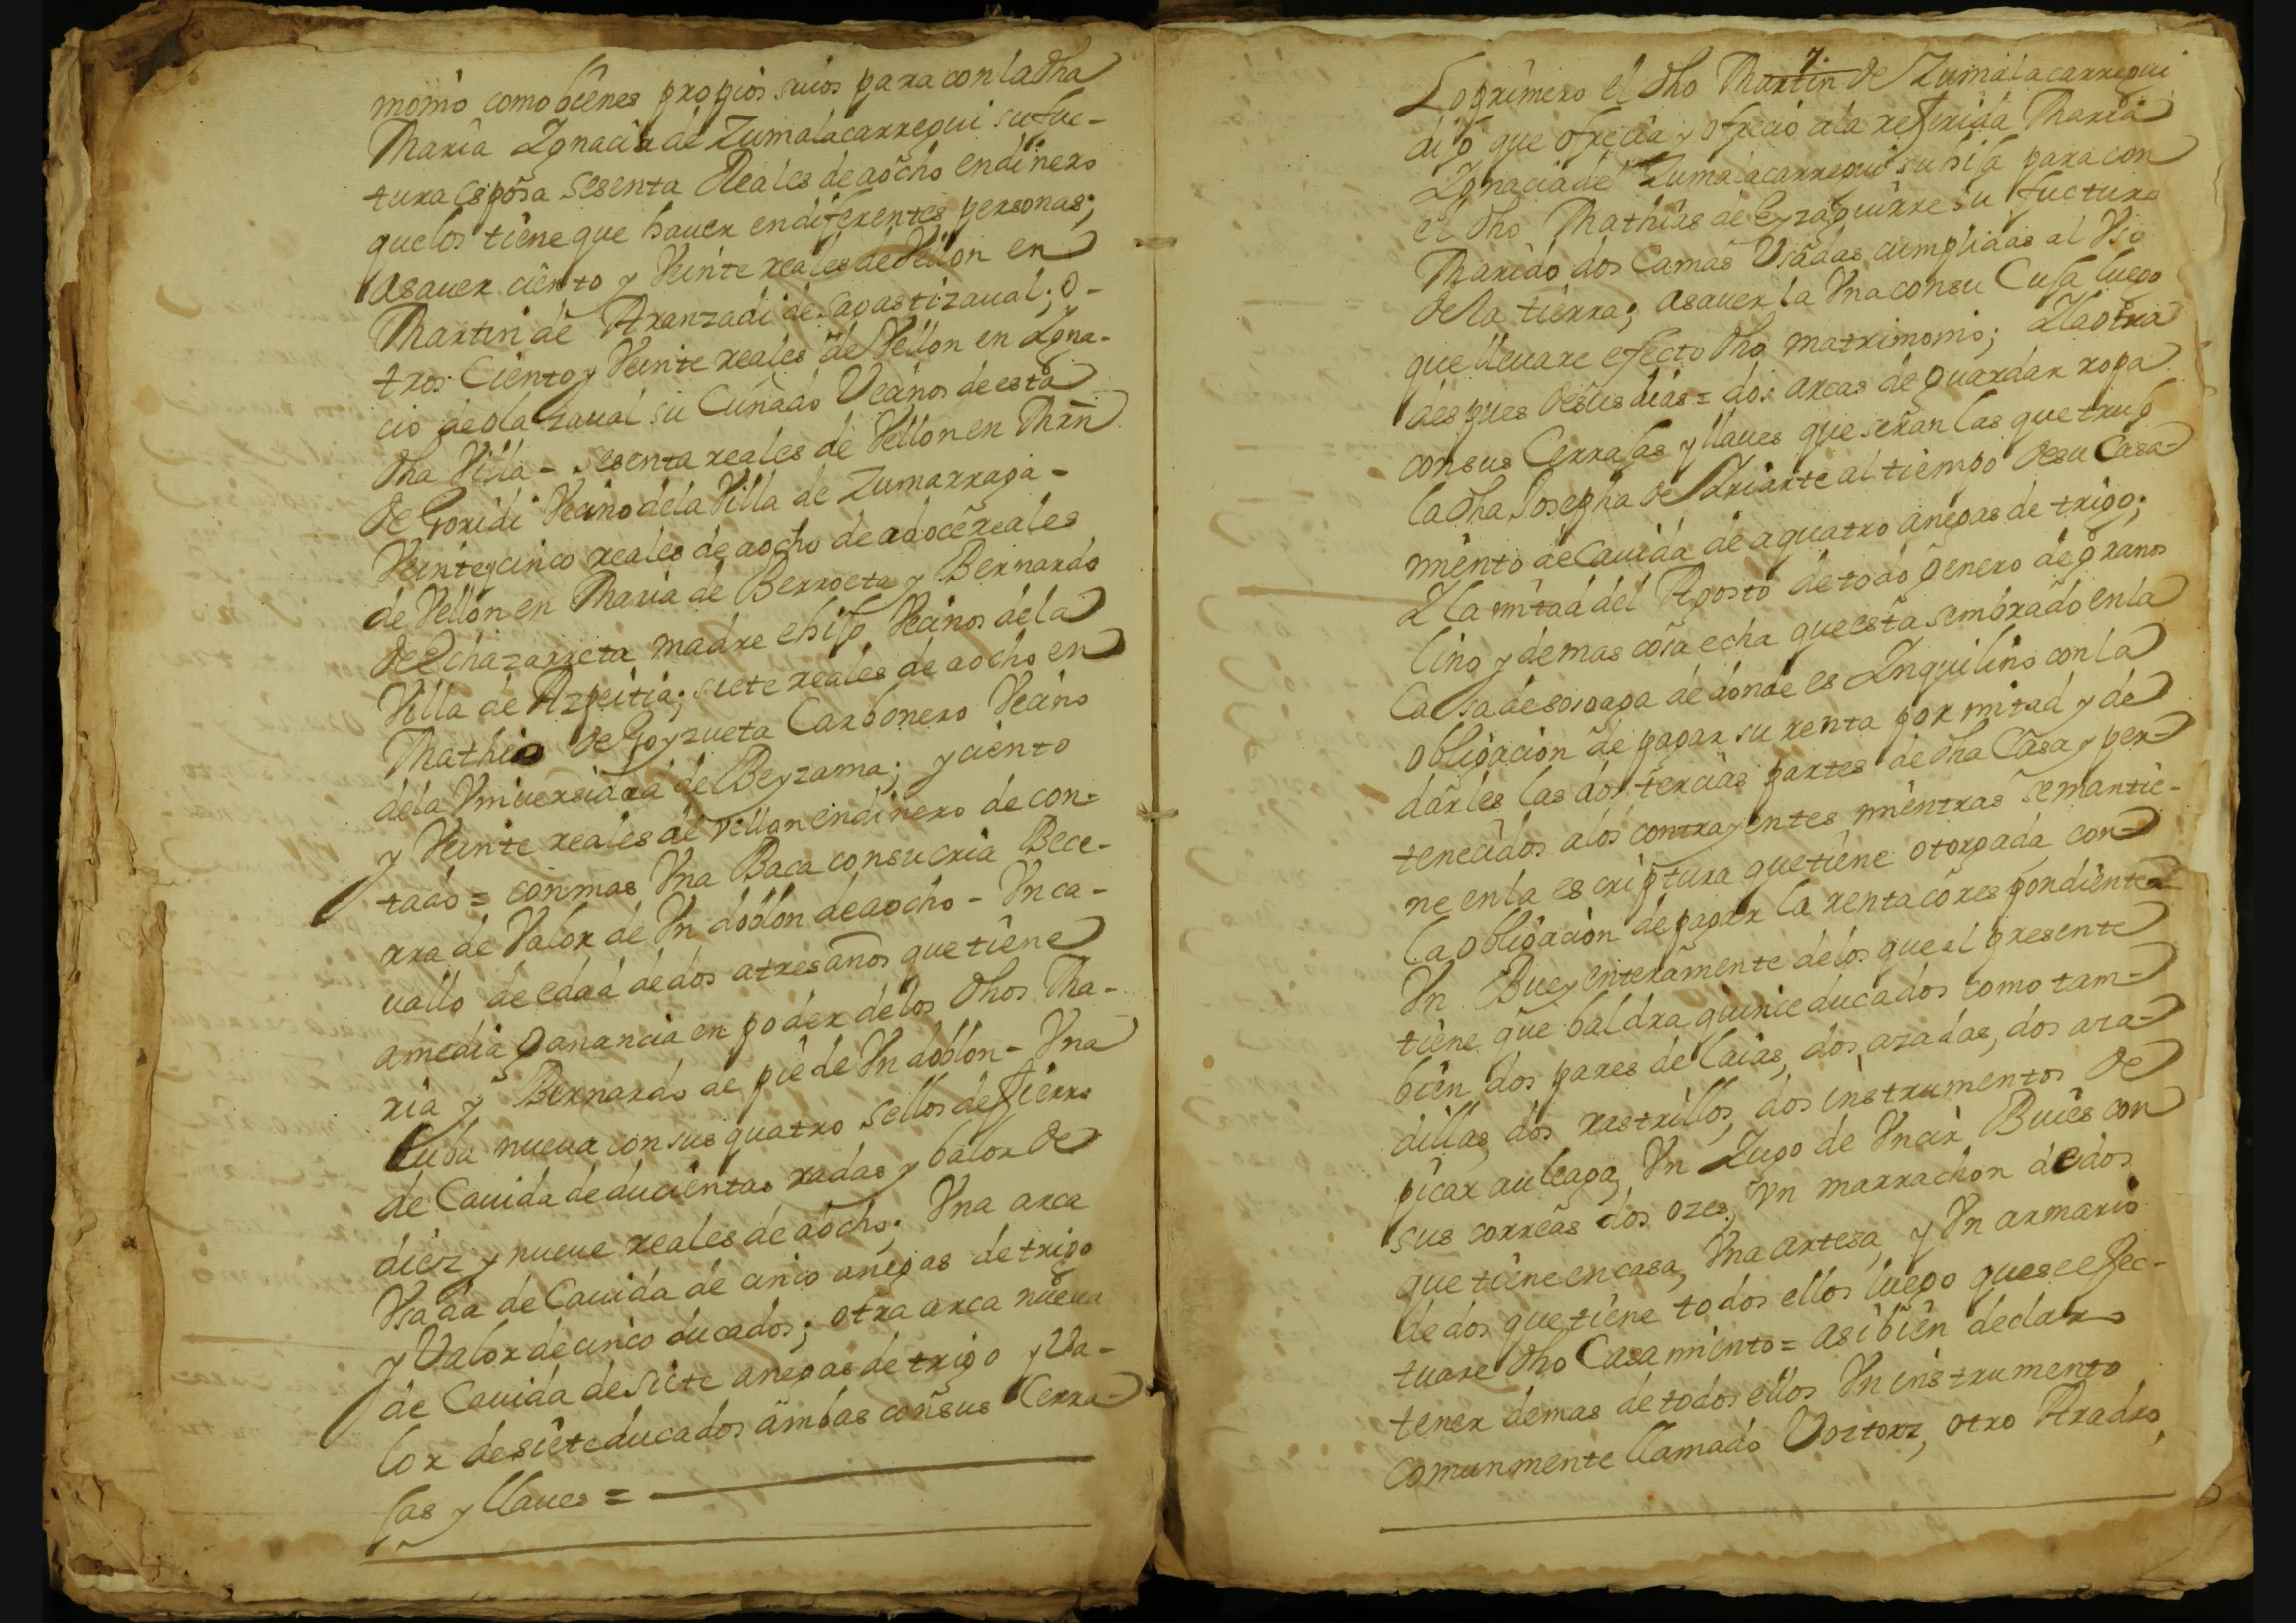 monio como biènes propios suios para con la dha
Maria Ygnacia de Zumalacarregui su fuc-
tura esposa sesenta Reales de aocho en dinero
que los tiène que hauer en diferentes personas;
asauer ciènto y Veinte reales de Vellon en
Martin de Aranzadi de Sagastizaual; o-
tros Ciento y Veinte reales de Vellon en Ygna-
cio de olazaual su Cuñado Vecinos de esta
dha Villa - sesenta reales de Vellon en Mrn
de Goridi Vecino dela Villa de Zumarraga -
Veinteycinco reales de aocho de adoce reales
de Vellon en Maria de Berroeta y Bernardo
de Echazarreta madre e hijo Vecinos dela
Villa de Azpeitia; siete reales de aocho en
Mathias de Goyzueta Carbonero Vecino
dela Vniuersidad de Beyzama; y ciento
y Veinte reales de vellon en dinero de con-
tado = con mas Vna Baca con su cria Bece-
rra de Valor de Vn doblon de aocho - Vn ca-
uallo de edad de dos atres años que tiène
amedia ganancia en poder de los dhos Ma-
ria y Bernardo de piè de Vn doblon - Vna
Cuba nueua con sus quatro sellos de fierro
de Cauida de ducientas radas y balor de
diez y nueue reales de aocho; Vna arca
Vsada de Cauida de cinco anegas de trigo
y Valor de cinco ducados; otra arca nueua
de Cauida de siete anegas de trigo y Va-
lor de siète ducados ambas con sus Cerra-
jas y llaues =
7
Lo primero el dho Martin de Zumalacarregui
dijo que ofrecia y ofreciò ala referida Maria
Ygnacia de Zumalacarregui su hija para con
el dho Mathias de Eyzaguirre su fucturo
Marido dos Camas Vsadas cumplidas al Vso
de la tièrra; asauer la Vna con su Cuja luego
que lleuare efecto dho matrimonio; Y la otra
despues de sus dias = dos arcas de guardar ropa
con sus Cerrajas y llaues que seran las que trujo
la dha Josepha de Yriarte al tièmpo de su Casa-
miènto de Cauida de aquatro anegas de trigo;
Y la mitad del Agosto de todo genero de granos
lino y demas cosa echa que esta sembrado en la
Casa de sosoaga de donde es Ynquilino con la
obligacion de pagar su renta por mitad y de
darles las dos tercias partes de dha Casa y per-
tenecidos alos contrayentes mièntras se mantie-
ne en la escriptura que tiène otorgada con
la obligacion de pagar la renta corespondiènte =
Vn Buey enteramente delos que al presente
tiène que baldra quinie ducados como tam-
bièn dos pares de laias, dos azadas, dos aza-
dillas, dos rastrillos, dos instrumentos de
picar auleaga, Vn Yugo de Vncir Buiès con
sus correas dos ozes, vn marrachon de dos
que tiène en casa, Vna artesa, y Vn armario
de dos que tiène todos ellos luego que se efec-
tuare dho Casamiènto = asi bièn declaro
tener demas de todos ellos Vn instrumento
Comunmente llamado Voztorz, otro Aradro,